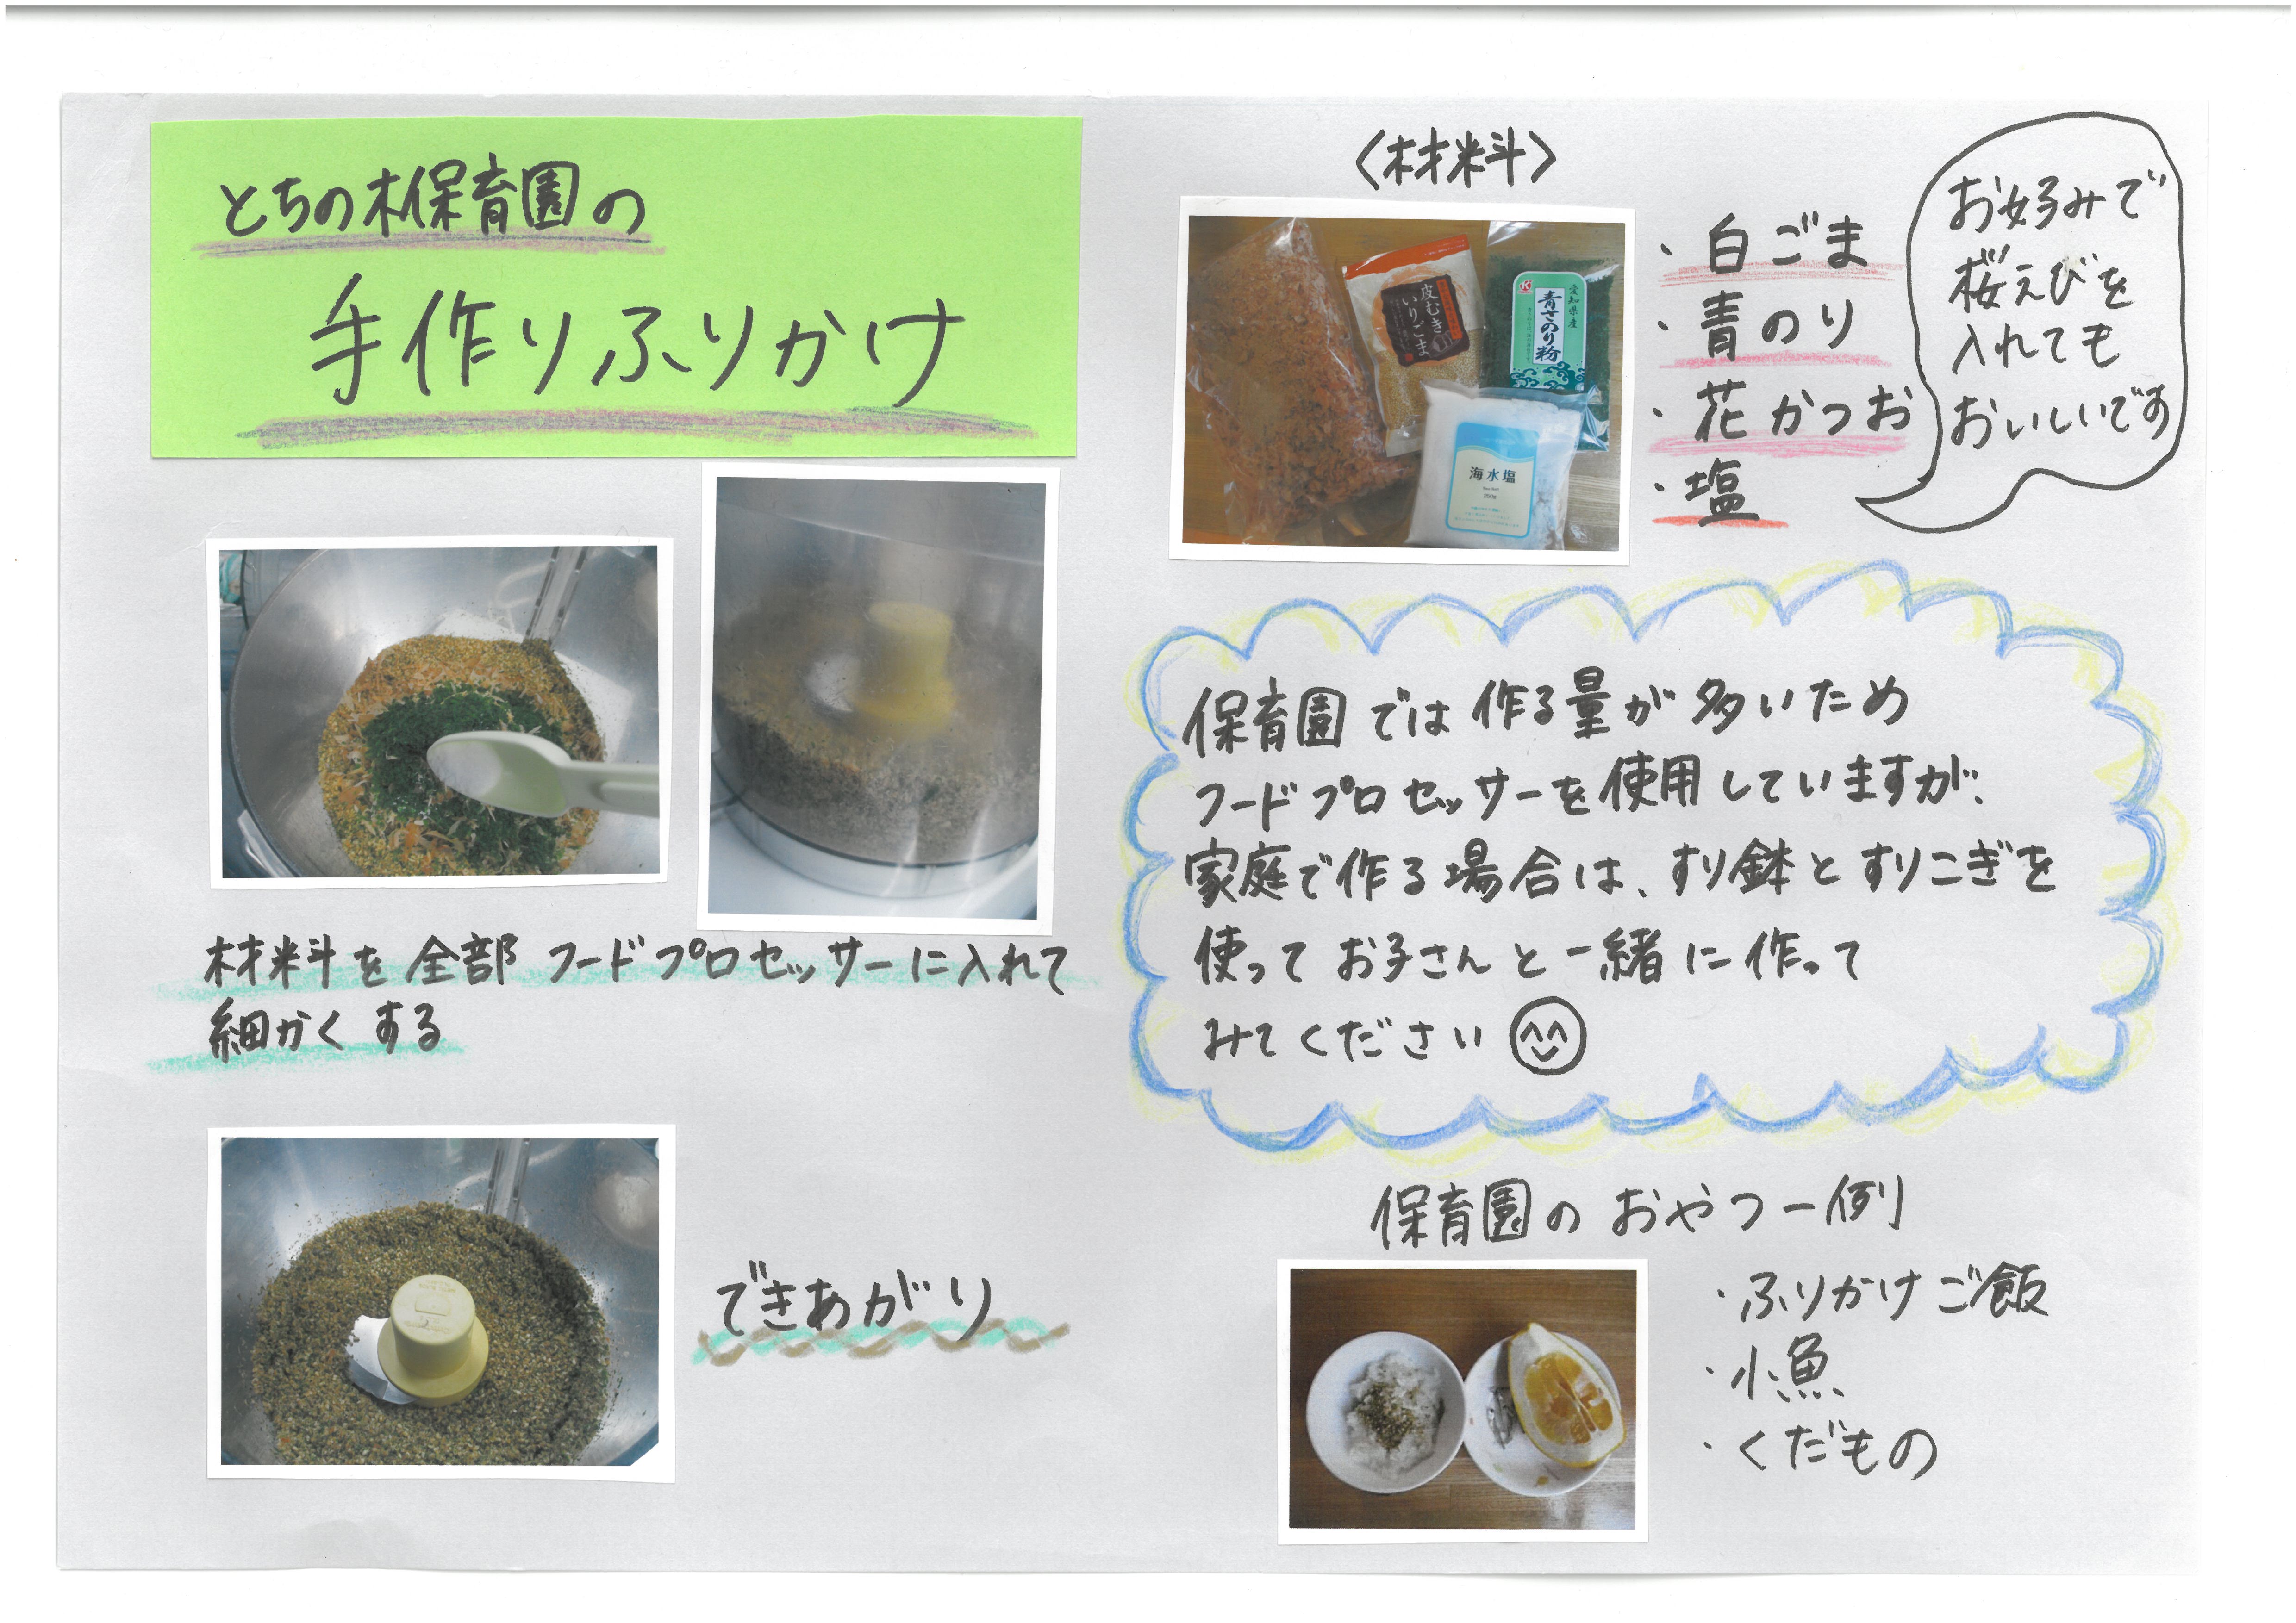 とちの木保育園の
手作りふりかけ
材料を全部フードプロセッサーに入れて
細かくする
できあがり
〈材料〉
皮むき
いりごま
愛知県産
青さのり粉
海水塩
250g
・白ごま
・青のり
・花かつお
・塩
お好みで
桜えびを
入れても
おいしいです
保育園では作る量が多いため
フードプロセッサーを使用していますが、
家庭で作る場合は、すり鉢とすりこぎを
使ってお子さんと一緒に作って
みてください
保育園のおやつ一例
・ふりかけご飯
・小魚
・くだもの